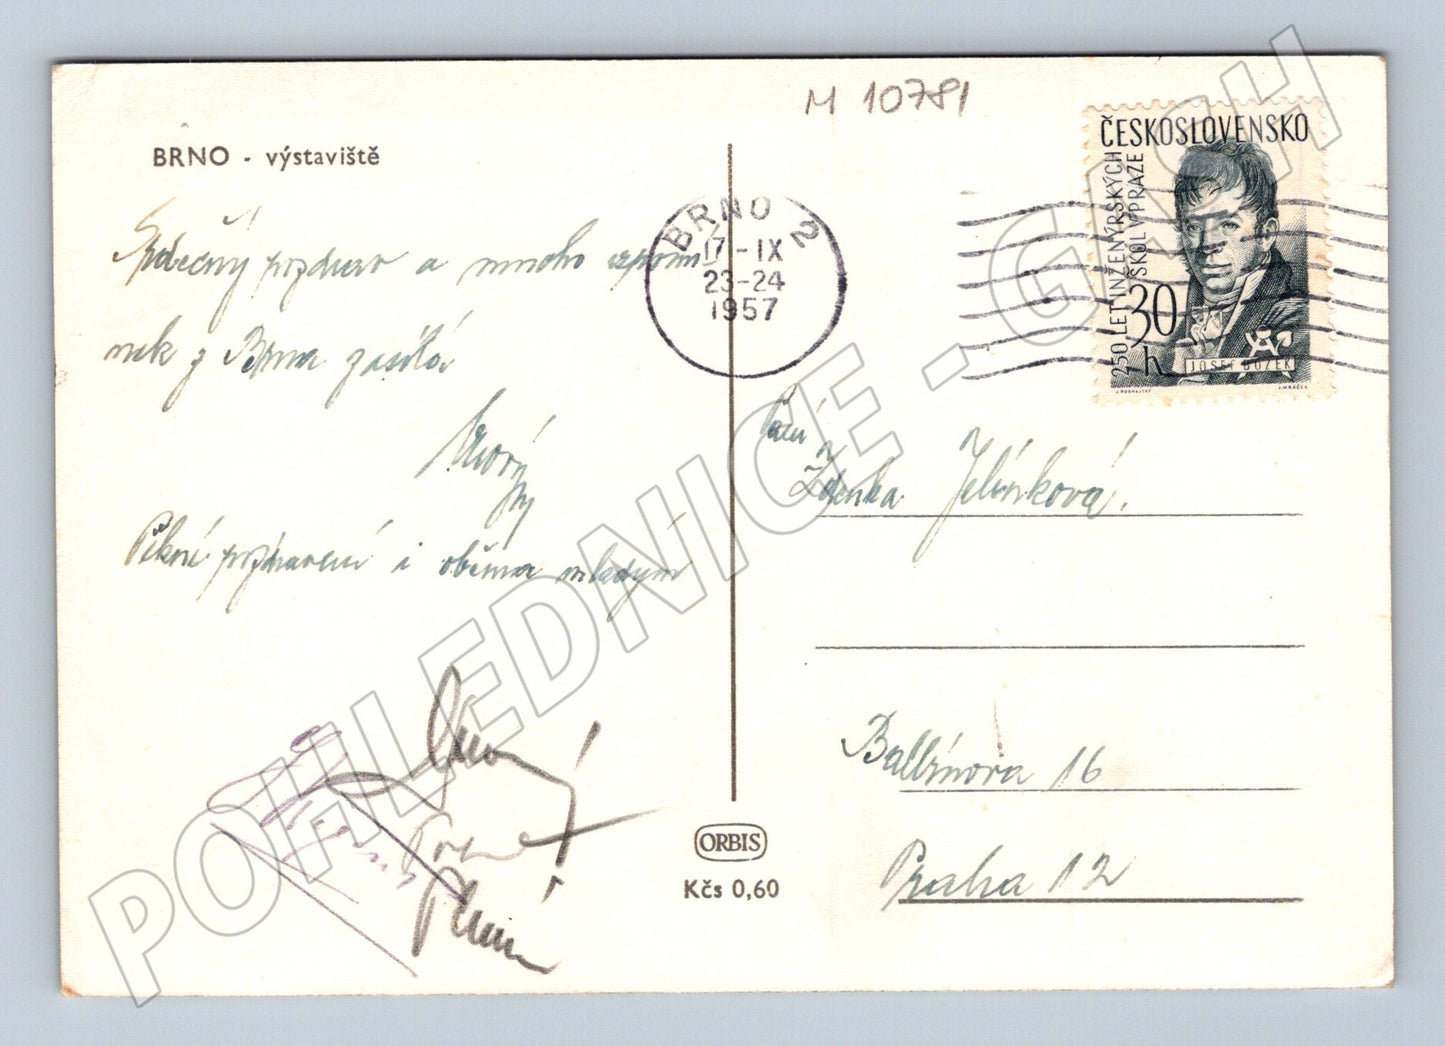 M 10781
BRNO - výstaviště
Srdečný pozdrav a mnoho vzpomí
nek z Brna zasílá
Pěkné pozdravení i oběma mladým
BRNO 2
17-IX
23-24
1957
ČESKOSLOVENSKO
250 LET INŽENÝRSKÝCH
ŠKOL V PRAZE
30
h
JOSEF BOŽEK
J. MRÁČEK
Paní
Zdenka Jelínková.
Balbínova 16
Praha 12
ORBIS
Kčs 0,60
POHLEDNICE - GASH